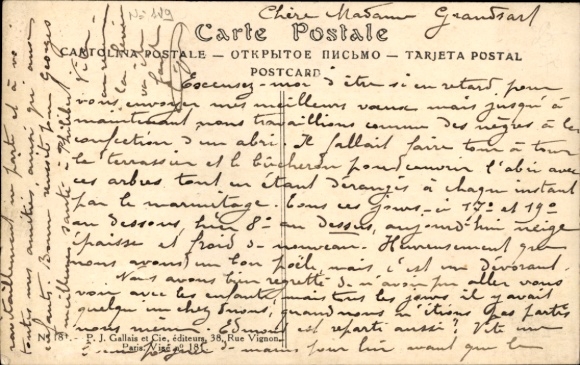 No 189
Chère Madame Grandsart
Carte Postale
CARTOLINA POSTALE — ОТКРЫТОЕ ПИСЬМО — TARJETA POSTAL
POSTCARD
Excusez-moi d'être si en retard pour
vous envoyer mes meilleurs vœux mais jusqu'à
maintenant nous travaillions comme des nègres à la
confection d'un abri. Il fallait faire tour à tour
le terrassier et le bûcheron pour couvrir l'abri avec
ces arbres tout en étant dérangés à chaque instant
par le marmitage. Tous ces jours - à 17° et 19°
au dessous, hier 8° au dessus, aujourd'hui neige
épaisse et froid de nouveau. Heureusement que
nous avons un bon poêle mais c'est un dévorant.
Nous avons bien regretté de n'avoir pu aller vous
voir avec les enfants mais tous les jours il y avait
quelqu'un chez nous, quand nous n'étions pas partis
nous même. Edmond est reparti aussi. Vite une
poignée de mains pour lui avant que le
N. 181. - P. J. Gallais et Cie, éditeurs, 38, Rue Vignon,
Paris. Visé nº 181
ravitaillement ne parte et à vous
toutes nos amitiés, ainsi qu'aux
enfants. Bonne réussite pour Georges
meilleure santé à Philibert